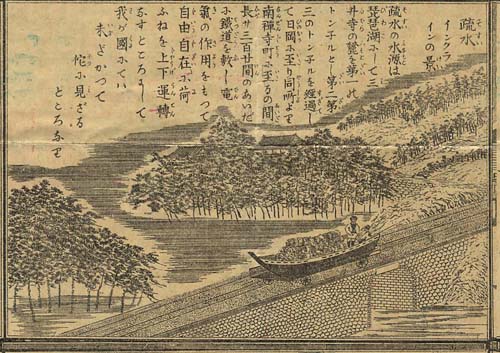 疏水
インクラ
インの景
疏水の水源は
琵琶湖にして三
井寺の麓を第一の
トンチルと第二第
三のトンチルを經過し
て日岡に至り同所より
南禅寺町に至るの間
長サ三百廿間のあいだ
に鐵道を敷し電
氣の作用をもつて
自由自在に荷
ふねを上下運轉
なすところにして
我が國にてハ
未だかつて
他に見ざる
ところなり